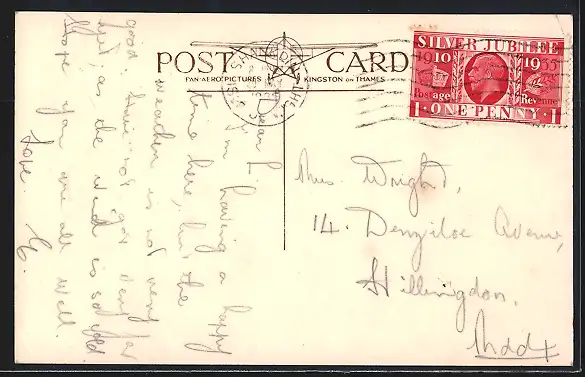 POST CARD
PAN-AERO PICTURES KINGSTON ON THAMES
SILVER JUBILEE
1910 1935
Postage Revenue
1 ONE PENNY 1
Dear
I'm having a happy
time here, but the
weather is not very
good. have not got very far
yet, as the wind is so cold
Hope you are all well.
Love.
Mrs. Wright,
14. Denziloe Avenue,
Hillingdon.
Middx